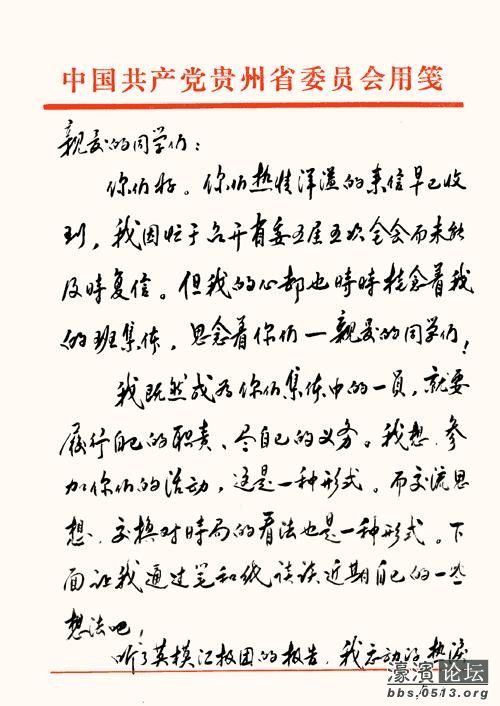 中国共产党贵州省委员会用笺
亲爱的同学们：
你们好。你们热情洋溢的来信早已收
到，我因忙于召开省委五届五次全会而未能
及时复信。但我的心却也時時挂念着我
的班集体，思念着你们—亲爱的同学们！
我既然成为你们集体中的一员，就要
履行自己的职责、尽自己的义务。我想，参
加你们的活动，这是一种形式。而交流思
想、交换对時局的看法也是一种形式。下
面让我通过笔和纸谈谈近期自己的一些
想法吧！
听了英模汇报团的报告，我忘动的热泪
濠滨论坛
bbs.0513.org